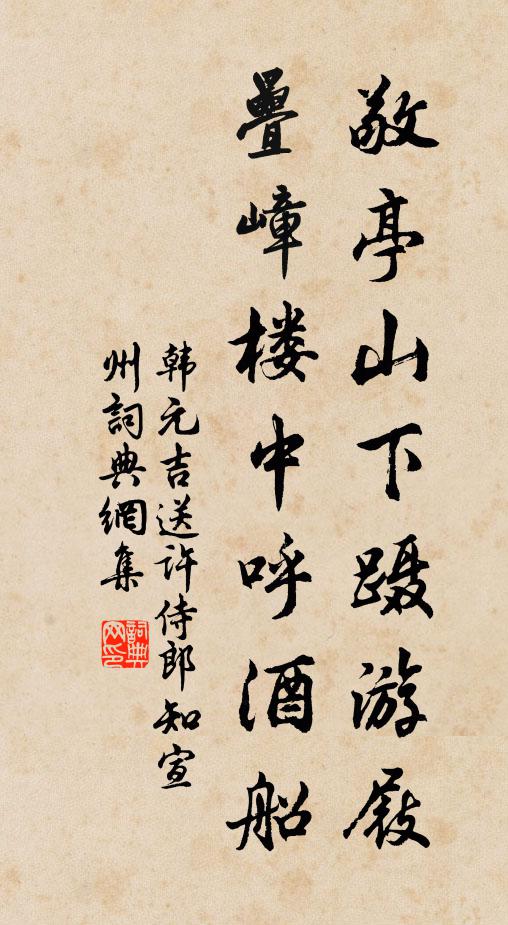 敬亭山下蹑游屐
疊嶂楼中呼酒船
韩元吉送许侍郎知宣
州詞典網集
詞典網印